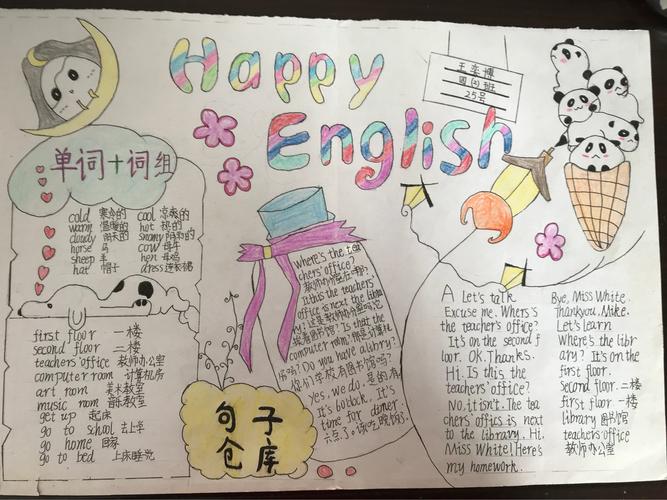 Happy
English
王奕博
四(4)班
25号
单词+词组
cold 寒冷的 cool 凉爽的
warm 温暖的 hot 热的
cloudy 阴天的 snowy 下雪的
horse 马 cow 母牛
sheep 羊 hen 母鸡
hat 帽子 dress 连衣裙
first floor 一楼
second floor 二楼
teachers'office 教师办公室
computer room 计算机房
art room 美术教室
music room 音乐教室
get up 起床
go to school 去上学
go home 回家
go to bed 上床睡觉
Where's the tea
chers'office?
教师办公室在哪?
It is the teachers'
office is next the libra
computer room?
Is that the
Do you have a
你们学校有图书馆吗?
Yes, we do. 是的,有
It's 6 o'clock. It's
time for dinner.
六点了。该吃晚饭
句子
仓库
A Let's talk
Excuse me. Where's
the teacher's office?
It's on the second f
loor. OK. Thanks.
Hi. Is this the
teachers'office?
No, it isn't. The tea
chers' office is next
to the library. Hi.
Miss White! Here's
my homework.
Bye, Miss White.
Thankyou, Mike.
Let's learn
Where's the libr
ary? It's on the
first floor.
second floor. 二楼
first floor 一楼
library 图书馆
teachers'office
教师办公室